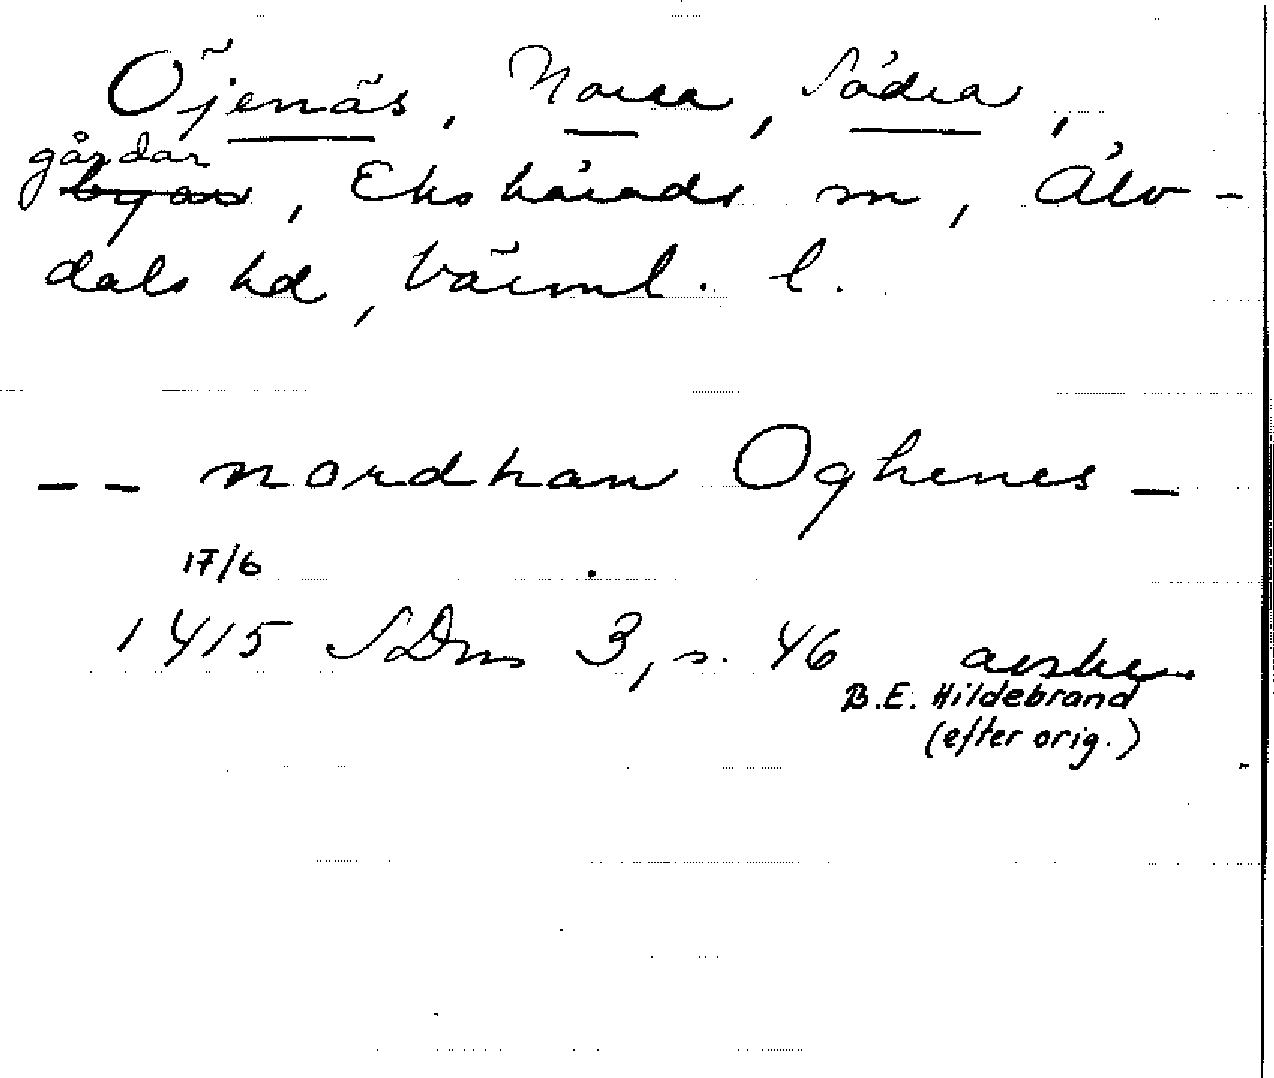 Öjenäs, Norra, Södra,
gårdar
byar, Ekshärads sn, Älv-
dals hd, Värml. l.
-- nordhan Oghenes -
17/6
1415 SDns 3, s. 46
B.E. Hildebrand
(efter orig.)